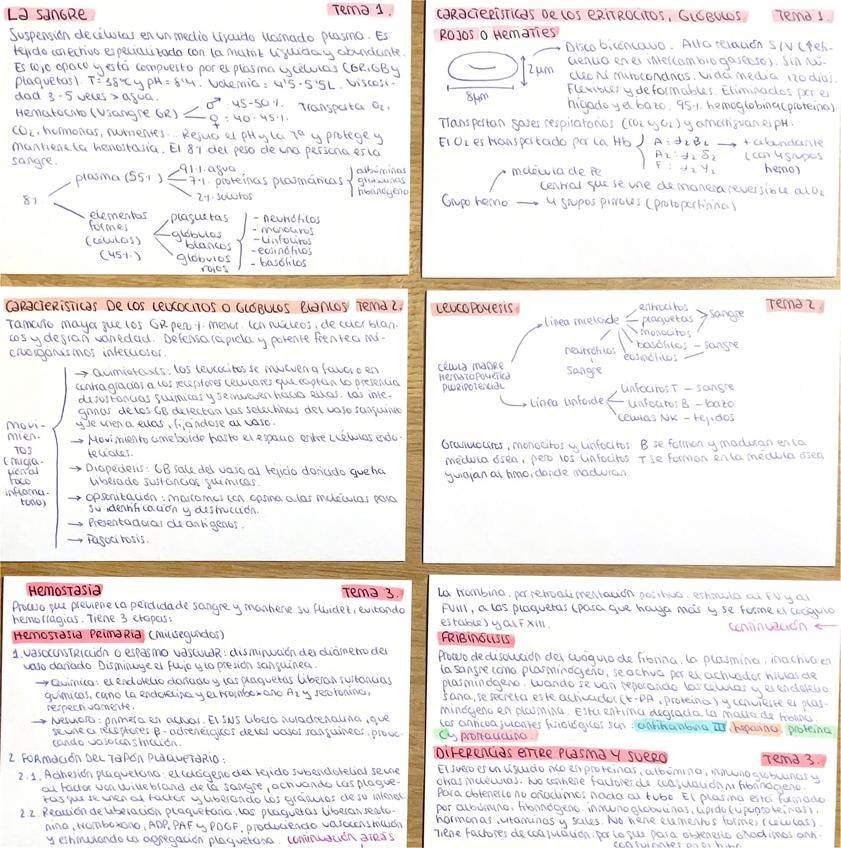 LA SANGRE TEMA 1.
Suspensión de células en un medio líquido llamado plasma. Es
tejido conectivo especializado con la matriz líquida y abundante.
Es rojo opaco y está compuesto por el plasma y células (GR, GB y
plaquetas). Tª=38ºC y pH=8'4. Volemia=4'5-5'5L. Viscosi-
dad 3-5 veces > agua.
Hematocrito (V sangre GR) ♂: 45-50%. Transporta O2,
♀: 40-45%.
CO2, hormonas, nutrientes... Regula el pH y la Tª y protege y
mantiene la hemostasia. El 8% del peso de una persona es la
sangre.
8% plasma (55%) 91% agua
7% proteínas plasmáticas albúminas
globulinas
fibrinógeno
2% solutos
elementos
formes
(células)
(45%)
plaquetas
glóbulos
blancos
glóbulos
rojos
- neutrófilos
- monocitos
- linfocitos
- eosinófilos
- basófilos
CARACTERÍSTICAS DE LOS ERITROCITOS, GLÓBULOS TEMA 1.
ROJOS O HEMATÍES
Disco bicóncavo. Alta relación S/V (↑efi-
ciencia en el intercambio gaseoso). Sin nú-
cleo ni mitocondrias. Vida media 120 días.
Flexibles y deformables. Eliminados por el
hígado y el bazo. 95% hemoglobina (proteína)
2μm
8μm
Transportan gases respiratorios (CO2 y O2) y amortiguan el pH.
El O2 es transportado por la Hb A: α2β2 → + abundante
A2: α2δ2 (con 4 grupos
F: α2γ2 hemo)
Grupo hemo → molécula de Fe
central que se une de manera reversible al O2
→ 4 grupos pirroles (protoporfirina)
CARACTERÍSTICAS DE LOS LEUCOCITOS O GLÓBULOS BLANCOS TEMA 2.
Tamaño mayor que los GR pero % menor. Con núcleos, de color blan-
cos y de gran variedad. Defensa rápida y potente frente a mi-
croorganismos infecciosos.
MOVI-
MIEN-
TOS
(migra-
ción al
foco
inflama-
torio)
→ Quimiotaxis: los leucocitos se mueven a favor o en
contra gracias a los receptores celulares que captan la presencia
de sustancias químicas y se mueven hacia ellas. Las inte-
grinas de los GB detectan las selectinas del vaso sanguíneo
y se unen a ellas, fijándose al vaso.
→ Movimiento ameboide hasta el espacio entre 2 células endo-
teliales.
→ Diapédesis: GB sale del vaso al tejido dañado que ha
liberado sustancias químicas.
→ Opsonización: marcamos con opsina a las moléculas para
su identificación y destrucción.
→ Presentadoras de antígenos.
→ Fagocitosis.
LEUCOPOYESIS TEMA 2.
CÉLULA MADRE
HEMATOPOYÉTICA
PLURIPOTENCIAL
Línea mieloide
eritrocitos
plaquetas
sangre
monocitos
basófilos - sangre
eosinófilos
neutrófilos
sangre
Línea linfoide
linfocitos T - sangre
linfocitos B - bazo
células NK - tejidos
Granulocitos, monocitos y linfocitos B se forman y maduran en la
médula ósea, pero los linfocitos T se forman en la médula ósea
y viajan al timo, donde maduran.
HEMOSTASIA TEMA 3.
Proceso que previene la pérdida de sangre y mantiene su fluidez, evitando
hemorragias. Tiene 3 etapas:
HEMOSTASIA PRIMARIA (milisegundos)
1. VASOCONSTRICCIÓN O ESPASMO VASCULAR: disminución del diámetro del
vaso dañado. Disminuye el flujo y la presión sanguínea.
→ Química: el endotelio dañado y las plaquetas liberan sustancias
químicas, como la endotelina y el tromboxano A2 y serotonina,
respectivamente.
→ Nervioso: primera en actuar. El SNS libera noradrenalina, que
se une a receptores β-adrenérgicos de los vasos sanguíneos, provo-
cando vasoconstricción.
2. FORMACIÓN DEL TAPÓN PLAQUETARIO:
2.1. Adhesión plaquetaria: el colágeno del tejido subendotelial se une
al factor von Willebrand de la sangre, activando las plaque-
tas que se unen al factor y liberando los gránulos de su interior.
2.2. Reacción de liberación plaquetaria: las plaquetas liberan seroto-
nina, tromboxano, ADP, PAF y PDGF, produciendo vasoconstricción
y estimulando la agregación plaquetaria. CONTINUACIÓN ATRÁS
La trombina, por retroalimentación positiva, estimula al FV y al
FVIII, a las plaquetas (para que haya más y se forme el coágulo
estable) y al FXIII. CONTINUACIÓN ←
FRIBINÓLISIS
Proceso de disolución del coágulo de fibrina. La plasmina, inactiva en
la sangre como plasminógeno, se activa por el activador tisular de
plasminógeno. Cuando se van reparando las células y el endotelio
sana, se secreta este activador (t-PA, proteína) y convierte el plas-
minógeno en plasmina. Esta enzima degrada la malla de fibrina.
Los anticoagulantes fisiológicos son: antitrombina III, heparina, proteína
C y prostaciclina.
DIFERENCIAS ENTRE PLASMA Y SUERO TEMA 3.
El suero es un líquido rico en proteínas, albúmina, inmunoglobulinas y
otras moléculas. No contiene factores de coagulación ni fibrinógeno.
Para obtenerlo no añadimos nada al tubo. El plasma está formado
por albúmina, fibrinógeno, inmunoglobulinas, lípidos (lipoproteínas),
hormonas, vitaminas y sales. No tiene elementos formes (células).
Tiene factores de coagulación, por lo que para obtenerlo añadimos anti-
coagulantes en el tubo.